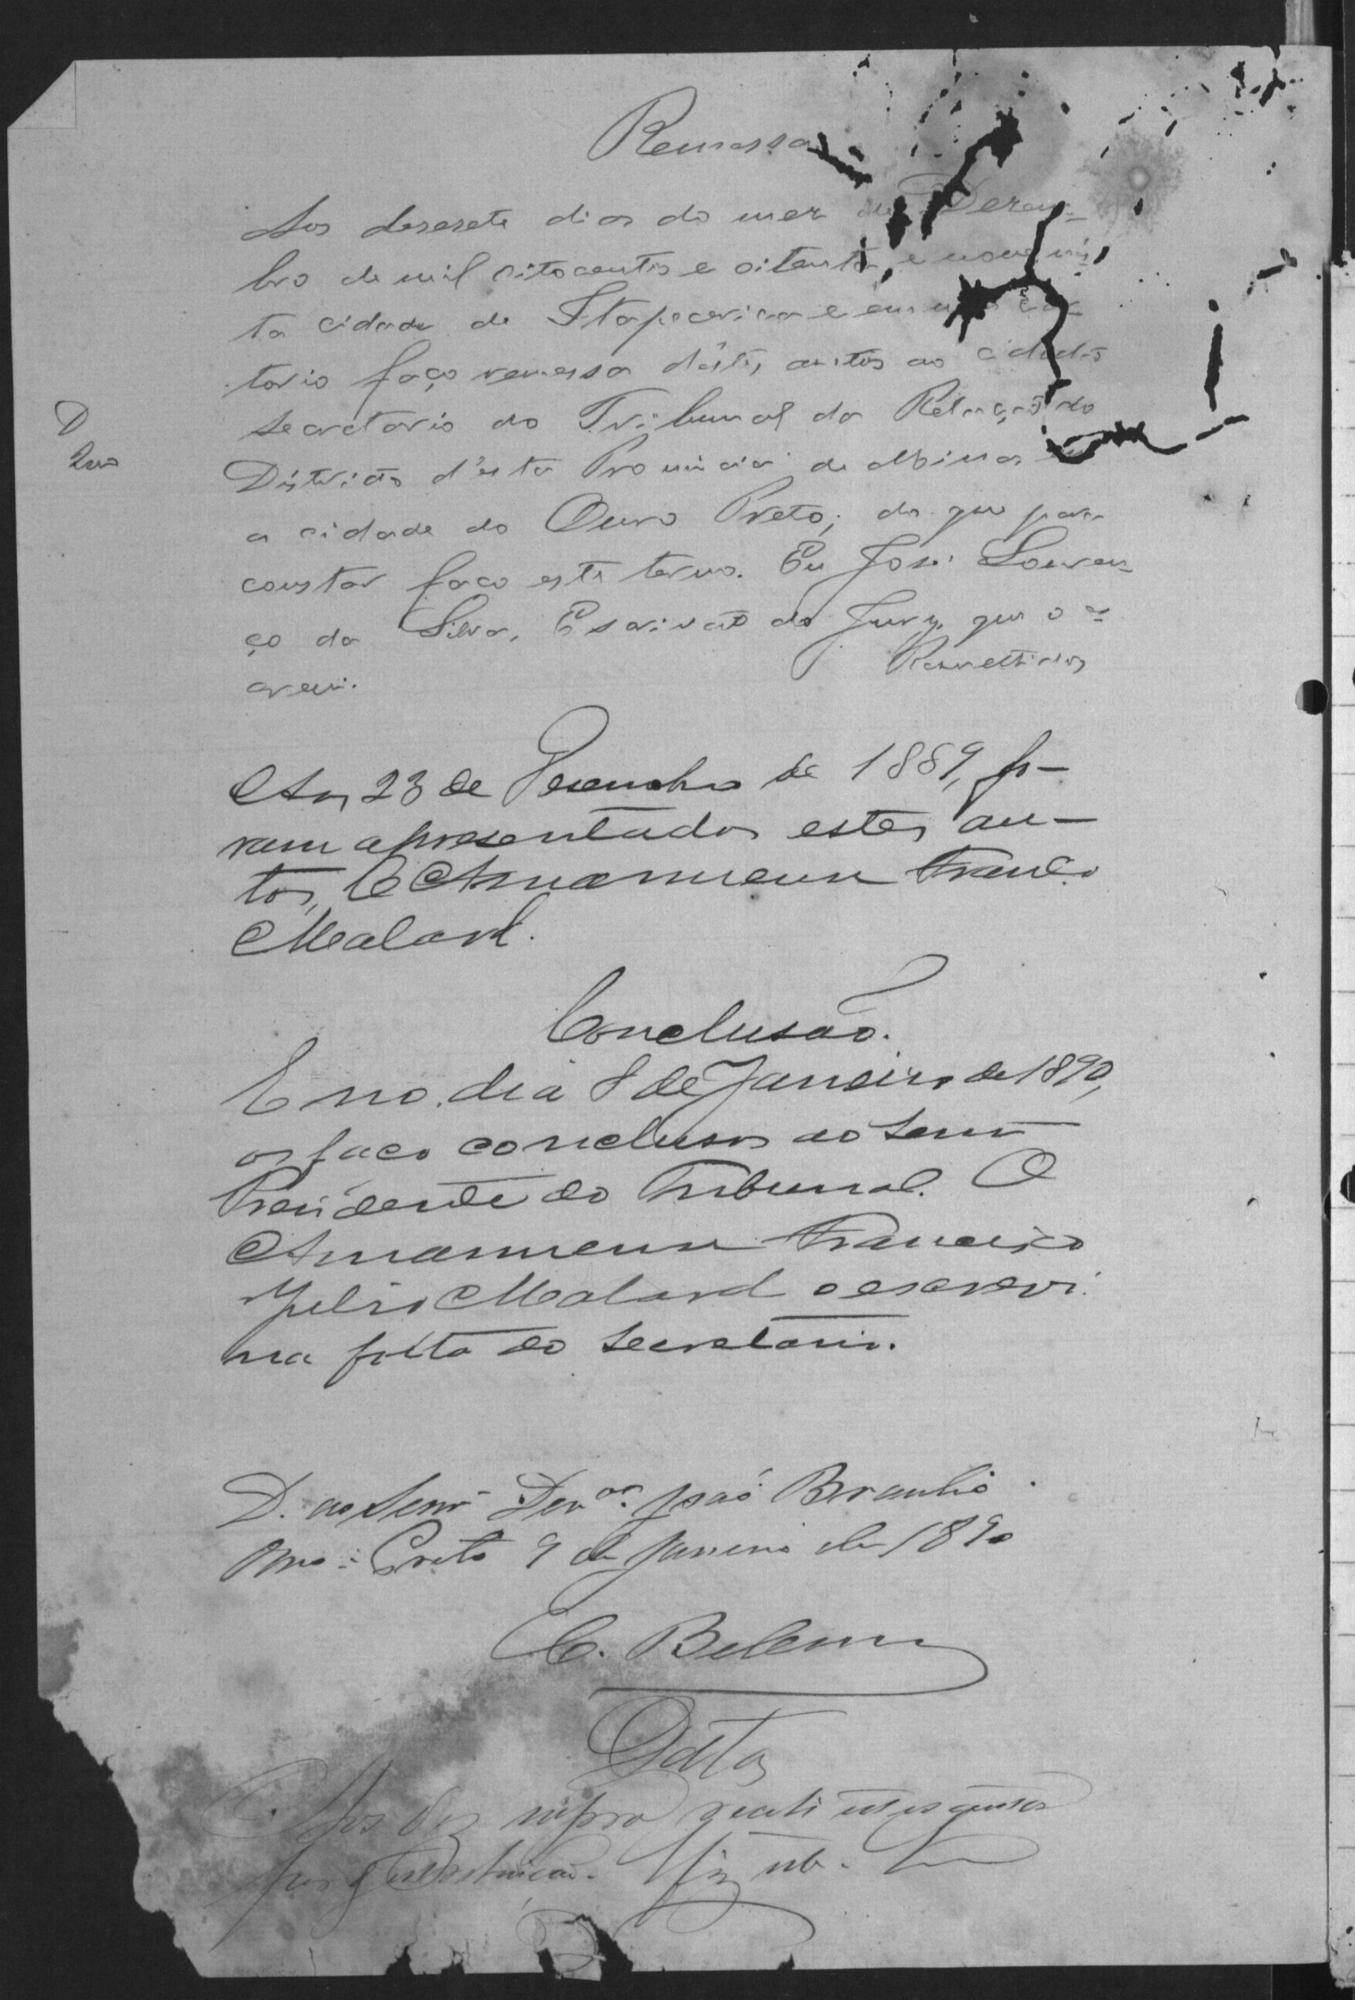 Remessa
Aos desesete dias do mez de Dezem-
bro de mil oitocentos e oitenta e nove n'es
ta cidade de Itapecerica e em meu Car-
torio faço remessa d'estes autos ao cidadão
secretario do Tribunal da Relação do
Districto d'esta Provincia de Minas
a cidade do Ouro Preto; do que para
constar faço este termo. Eu José Louren-
ço da Silva, Escrivão do Jury, que o es-
crevi.
Remettidos
D
Aos 23 de Desembro de 1889, fo-
ram apresentados estes au-
tos, O Amanuense Franco
Malard.
Conclusão.
E no dia 8 de Janeiro de 1890,
os faço conclusos ao Senr
Presidente do Tribunal. O
Amanuense Francisco
Julio Malard o escrevi
na falta do Secretario.
D. ao Senr Dezor. João Braulio
Ouro Preto 9 de Janeiro de 1890
C. Belem
Data
Aos dez supra recebi estes autos
por distribuição.